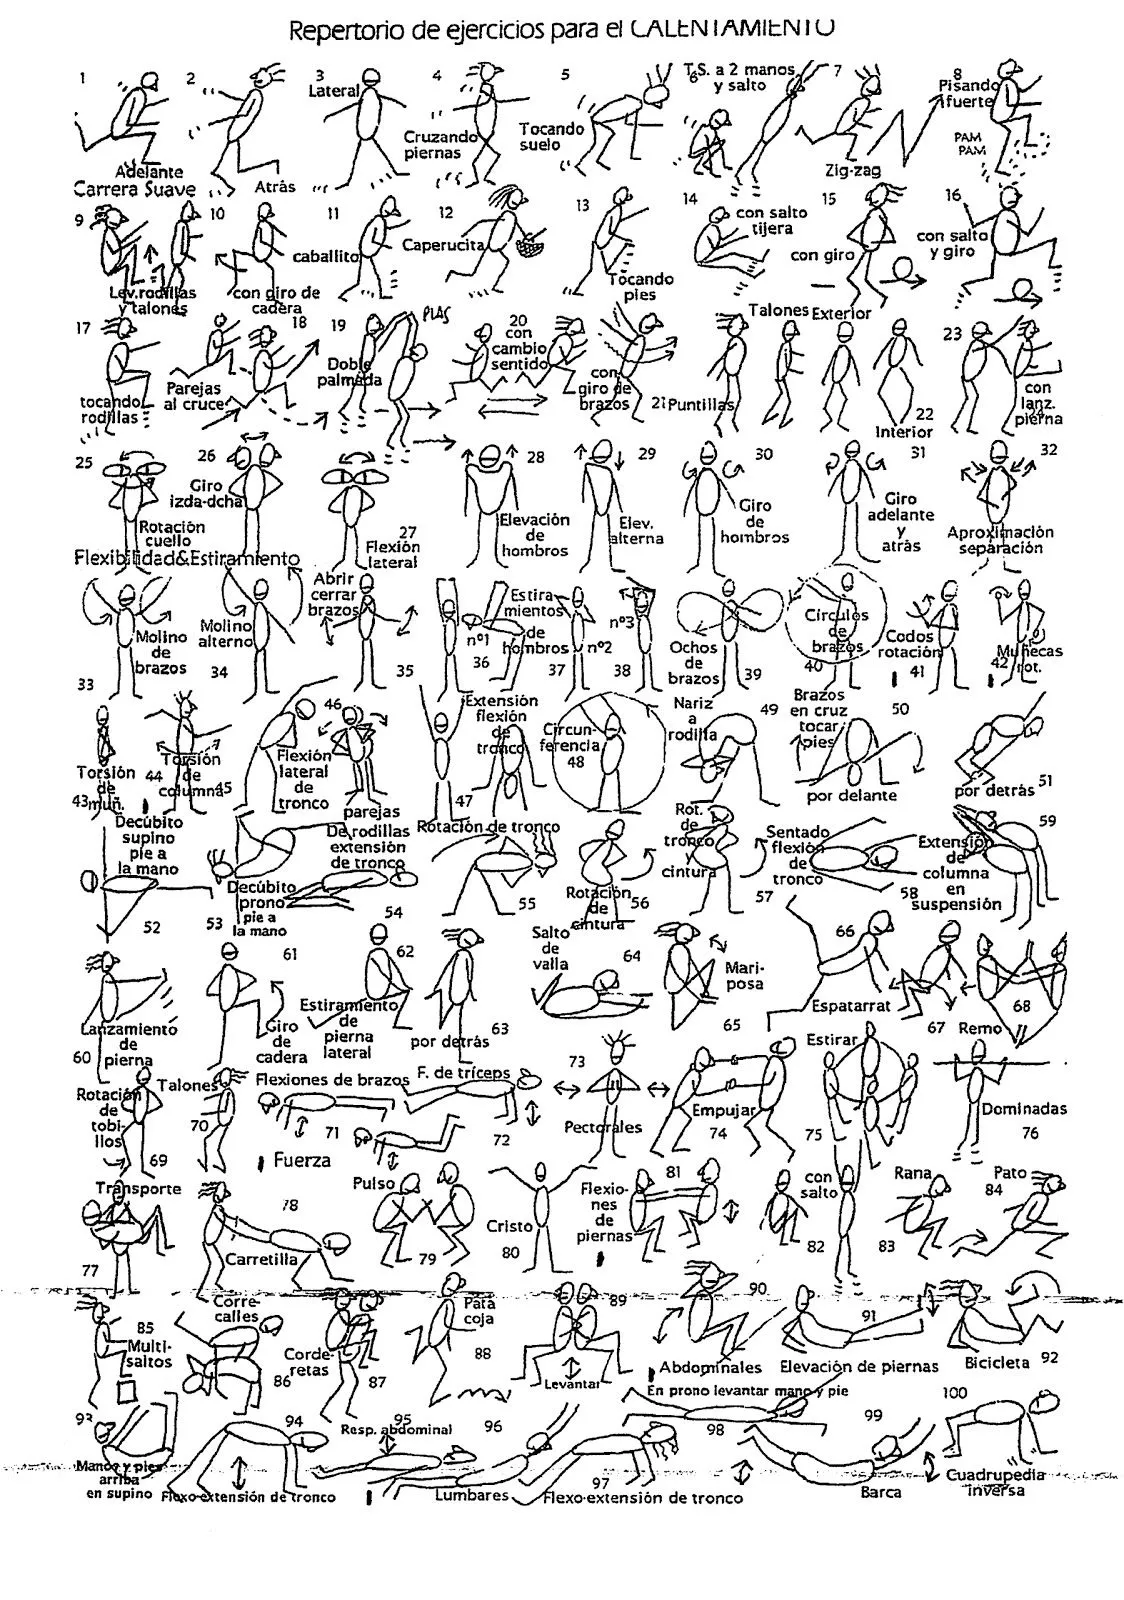 Repertorio de ejercicios para el CALENTAMIENTO
1
2
3
Lateral
4
Cruzando
piernas
5
Tocando
suelo
6
T.S. a 2 manos
y salto
7
Zig-zag
8
Pisando
fuerte
PAM
PAM
Adelante
Carrera Suave
Atrás
9
Lev.rodillas
y talones
10
con giro de
cadera
11
caballito
12
Caperucita
13
Tocando
pies
14
con salto
tijera
15
con giro
16
con salto
y giro
17
tocando
rodillas
18
Parejas
al cruce
19
Doble
palmada
PLAS
20
con
cambio
sentido
con
giro de
brazos
21 Puntillas
Talones Exterior
22
Interior
23
con
lanz.
pierna
24
25
Rotación
cuello
26
Giro
izda-dcha
27
Flexión
lateral
28
Elevación
de
hombros
29
Elev.
alterna
30
Giro
de
hombros
31
Giro
adelante
y
atrás
32
Aproximación
separación
Flexibilidad&Estiramiento
Molino
de
brazos
33
Molino
alterno
34
Abrir
cerrar
brazos
35
Estira-
mientos
de
hombros
nº1
36
nº2
37
nº3
38
Ochos
de
brazos
39
Círculos
de
brazos
40
Codos
rotación
41
Muñecas
rot.
42
Torsión
de
muñ.
43
44
Torsión
de
columna
45
46
Flexión
lateral
de
tronco
parejas
Extensión
flexión
de
tronco
47
Circun-
ferencia
48
Nariz
a
rodilla
49
Brazos
en cruz
tocar
pies
50
por delante
por detrás
51
Decúbito
supino
pie a
la mano
52
Decúbito
prono
pie a
la mano
53
De rodillas
extensión
de tronco
54
Rotación de tronco
55
Rotación
de
cintura
56
Rot.
de
tronco
y
cintura
57
Sentado
flexión
de
tronco
58
Extensión
de
columna
en
suspensión
59
Lanzamiento
de
pierna
60
61
Giro
de
cadera
62
Estiramiento
de
pierna
lateral
por detrás
63
Salto
de
valla
64
Mari-
posa
65
66
Espatarrat
67
Remo
68
Rotación
de
tobi-
llos
69
Talones
70
Flexiones de brazos
71
F. de tríceps
72
73
Pectorales
Empujar
74
Estirar
75
Dominadas
76
Fuerza
Transporte
77
78
Carretilla
Pulso
79
Cristo
80
Flexio-
nes
de
piernas
81
con
salto
82
Rana
83
Pato
84
85
Multi-
saltos
Corre-
calles
86
Corde-
retas
87
Pata
coja
88
89
Levantar
90
Abdominales
91
Elevación de piernas
Bicicleta 92
93
Manos y pies
arriba
en supino
94
Flexo-extensión de tronco
95
Resp. abdominal
96
Lumbares
97
Flexo-extensión de tronco
En prono levantar mano y pie
98
99
Barca
100
Cuadrupedia
inversa